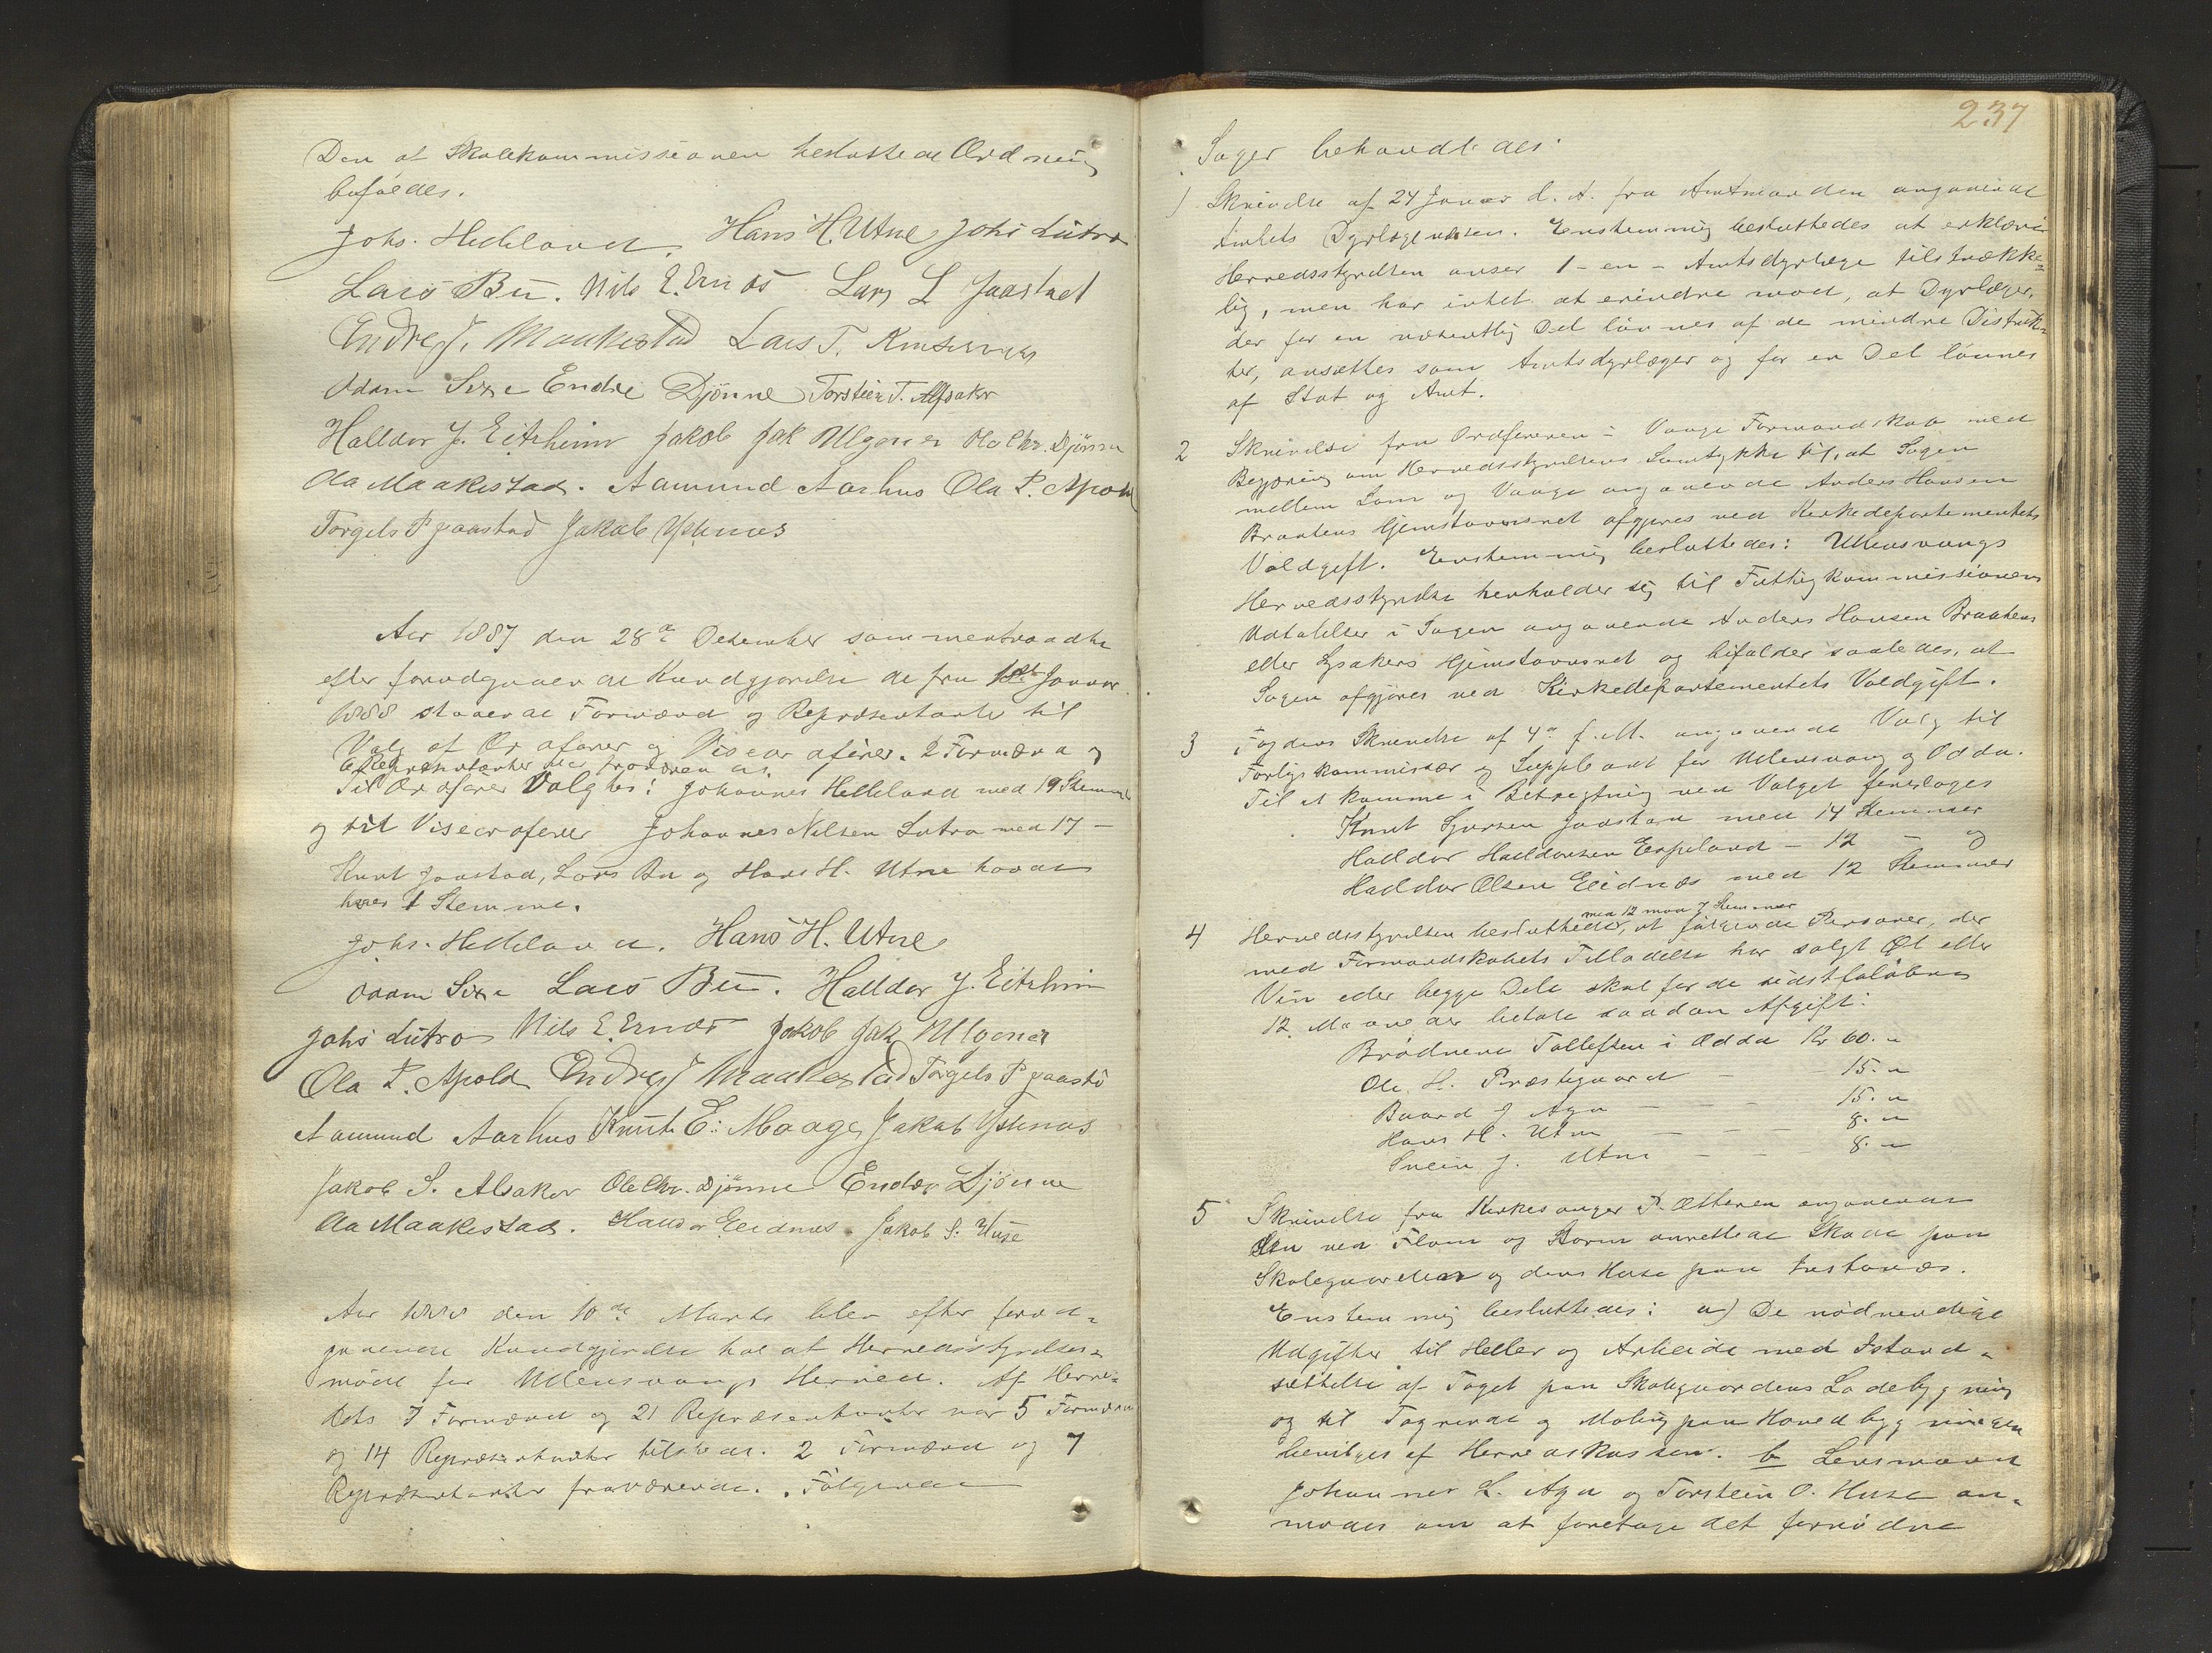 Den af Skolekommissionen besluttede Ordning
bifaldes.
Johs. Helleland. Hans H. Utne Johs Lutro
Lars Bu. Nils E. Ernæs Lars L Jaastad
Endre J. Maakestad Lars T. Kinservik
Odom Sexe Endre Djönne Torstein T. Alsaker
Halldor J. Eitrheim Jakob Jak Ulgenes Ole Chr. Djönne
Ola Maakestad. Aamund Aarhus Ola P. Apold
Torgels P Jaastad Jakob Ystenæs
Aar 1887 den 28de December sammentraadte
efter forudgaaende Kundgjørelse de fra 1ste Januar
1888 staaende Formænd og Repræsentanter til
Valg af Ordfører og Viseordfører. 2 Formænd og
6 Repræsentanter var fraværende.
Til Ordfører Valgtes: Johannes Helleland med 19 Stemmer
og til Viseordfører Johannes Nilsen Lutro med 17 –
Knut Jaastad, Lars Bu og Hans H. Utne havde
hver 1 Stemme.
Johs. Helleland. Hans H. Utne
Odom Sexe Lars Bu. Halldor J. Eitrheim
Johs Lutro Nils E. Ernæs Jakob Jak Ulgenes
Ola P. Apold Endre J Maakestad Torgels P Jaastad
Aamund Aarhus Knut E. Maage Jakob Ystenæs
Jakob S. Alsaker Ole Chr. Djönne Endre Djönne
Ola Maakestad. Haldor Eeidnæs. Jakob S. Huse
Aar 1888 den 10de Marts blev efter forud-
gaaende Kundgjørelse holdt Herredsstyrelses-
møde for Ullensvangs Herred. Af Herre-
dets 7 Formænd og 21 Repræsentanter var 5 Formænd
og 14 Repræsentanter tilstede. 2 Formænd og 7
Repræsentanter fraværende. Følgende
237
Sager behandledes:
1) Skrivelse af 24 Januar d. A. fra Amtmanden angaaende
Amtets Dyrlægevæsen. Enstemmig besluttedes at erklære
Herredsstyrelsen anser 1 - en - Amtsdyrlæge tilstrække-
lig, men har intet at erindre mod, at Dyrlæger,
der for en væsentlig Del lønnes af de mindre Distrik-
ter, ansættes som Amtsdyrlæger og for en Del lønnes
af Stat og Amt.
2 Skrivelse fra Ordføreren i Vaage Formandskab med
Begjæring om Herredsstyrelsens Samtykke til, at Sagen
mellem Lom og Vaage angaaende Anders Hansen
Braatens Hjemstavnsret afgjøres ved Kirkedepartementets
Voldgift. Enstemmig besluttedes: Ullensvangs
Herredsstyrelse henholder sig til Fattigkommissionens
Udtalelse i Sagen angaaende Anders Hansen Braatens
eller Lysakers Hjemstavnsret og bifalder saaledes, at
Sagen afgjøres ved Kirkedepartementets Voldgift.
3 Fogdens Skrivelse af 4de f. M. angaaende Valg til
Forligskommissær og Suppleant for Ullensvang og Odda.
Til at komme i Betragtning ved Valget foresloges
Knut Sjursen Jaastad med 14 Stemmer
Halldor Halldorsen Espeland – 12 – og
Haldor Olsen Eeidnæs med 12 Stemmer
4 Herredsstyrelsen besluttede med 12 mod 7 Stemmer, at følgende Personer, der
med Formandskabets Tilladelse har solgt Øl eller
Vin eller begge Dele skal for de sidst forløbne
12 Maaneder betale saadan Afgift:
Brødrene Tollefsen i Odda Kr 60. "
Ole H. Præstegaard – 15. "
Baard J Aga – – – 15. "
Hans H. Utne – – – 8. "
Svein J. Utne – – – 8. "
5 Skrivelse fra Kirkesanger P. angaaende
den ved Flom og Storm anrettede Skade paa
Skolegaarden og dens Huse paa
Enstemmig besluttedes: a) De nødvendige
Udgifter til Heller og Arbeide med Istand-
sættelse af Taget paa Skolegaardens Ladebygning
og til Tagrende og Maling paa Hovedbygningen
bevilges af Herredskassen. b Lensmand
Johannes L. Aga og Torstein O. Huse an-
modes om at foretage det fornødne